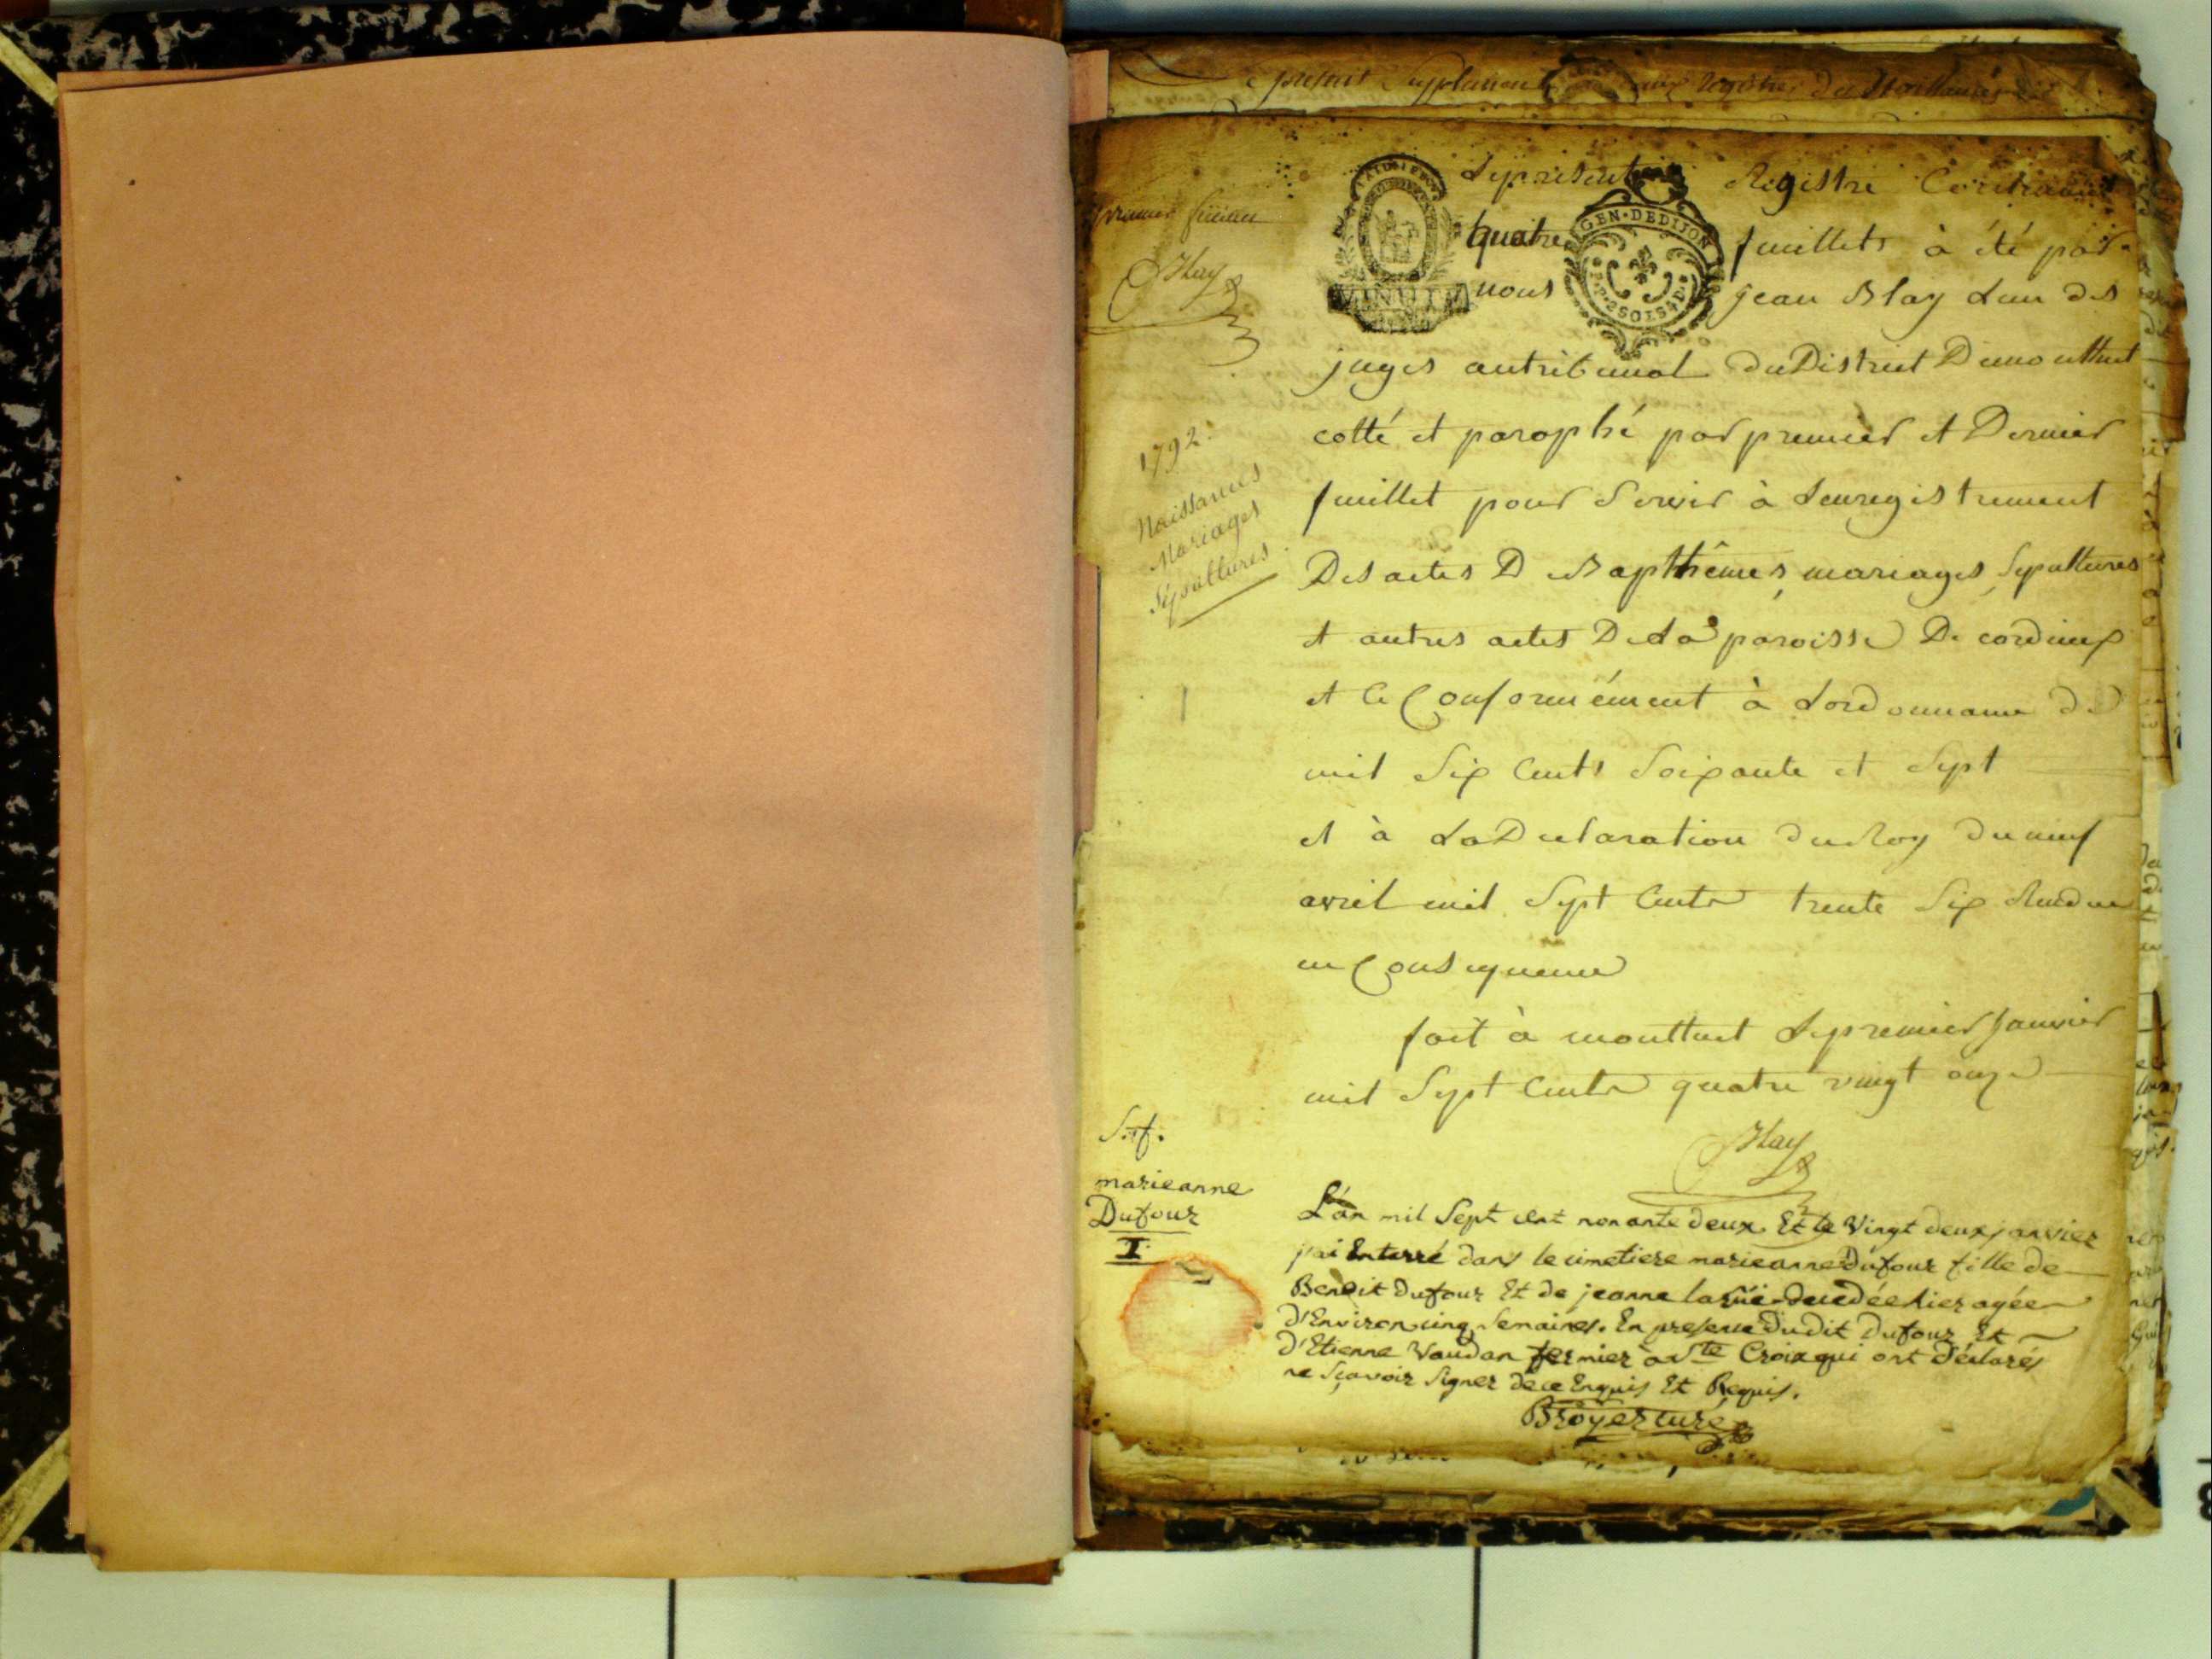 présent Supplément aux registres des
premier feuillet
Blay
Le présent Registre Contenant
quatre feuillets à été par
GEN·DEDIJON
nous jean Blay Lun des
juges autribunal du District Demonttuel
cotté et parophé par premier et Dernier
feuillet pour Servir à Lenregistrement
Des actes De Bapthêmes, mariages, Sepultures
et autres actes De La paroisse De cordieux
et Ce Conformément à Lordonnance de
mil Six Cents Soixante et Sept
et à La Declaration du Roy du neuf
avril mil Sept Cents trente Six Rendue
en Consequence
fait à monttuel Le premier Janvier
mil Sept Cents quatre vingt onze
Blay
1792.
Naissances
Mariages
Sépultures
1
S.f.
marieanne
Dufour
I
L'an mil Sept cent nonante deux. Et le Vingt deux janvier
j'ai Enterré dans le cimetiere marieanne Dufour fille de
Benoit Dufour Et de jeanne larüe decedée hier agée
d'Environ cinq Semaines. En presence du dit Dufour Et
d'Etienne Vaudan fermier à Ste Croix qui ont déclarés
ne Sçavoir Signer de ce Enquis Et Requis.
Broyer curé